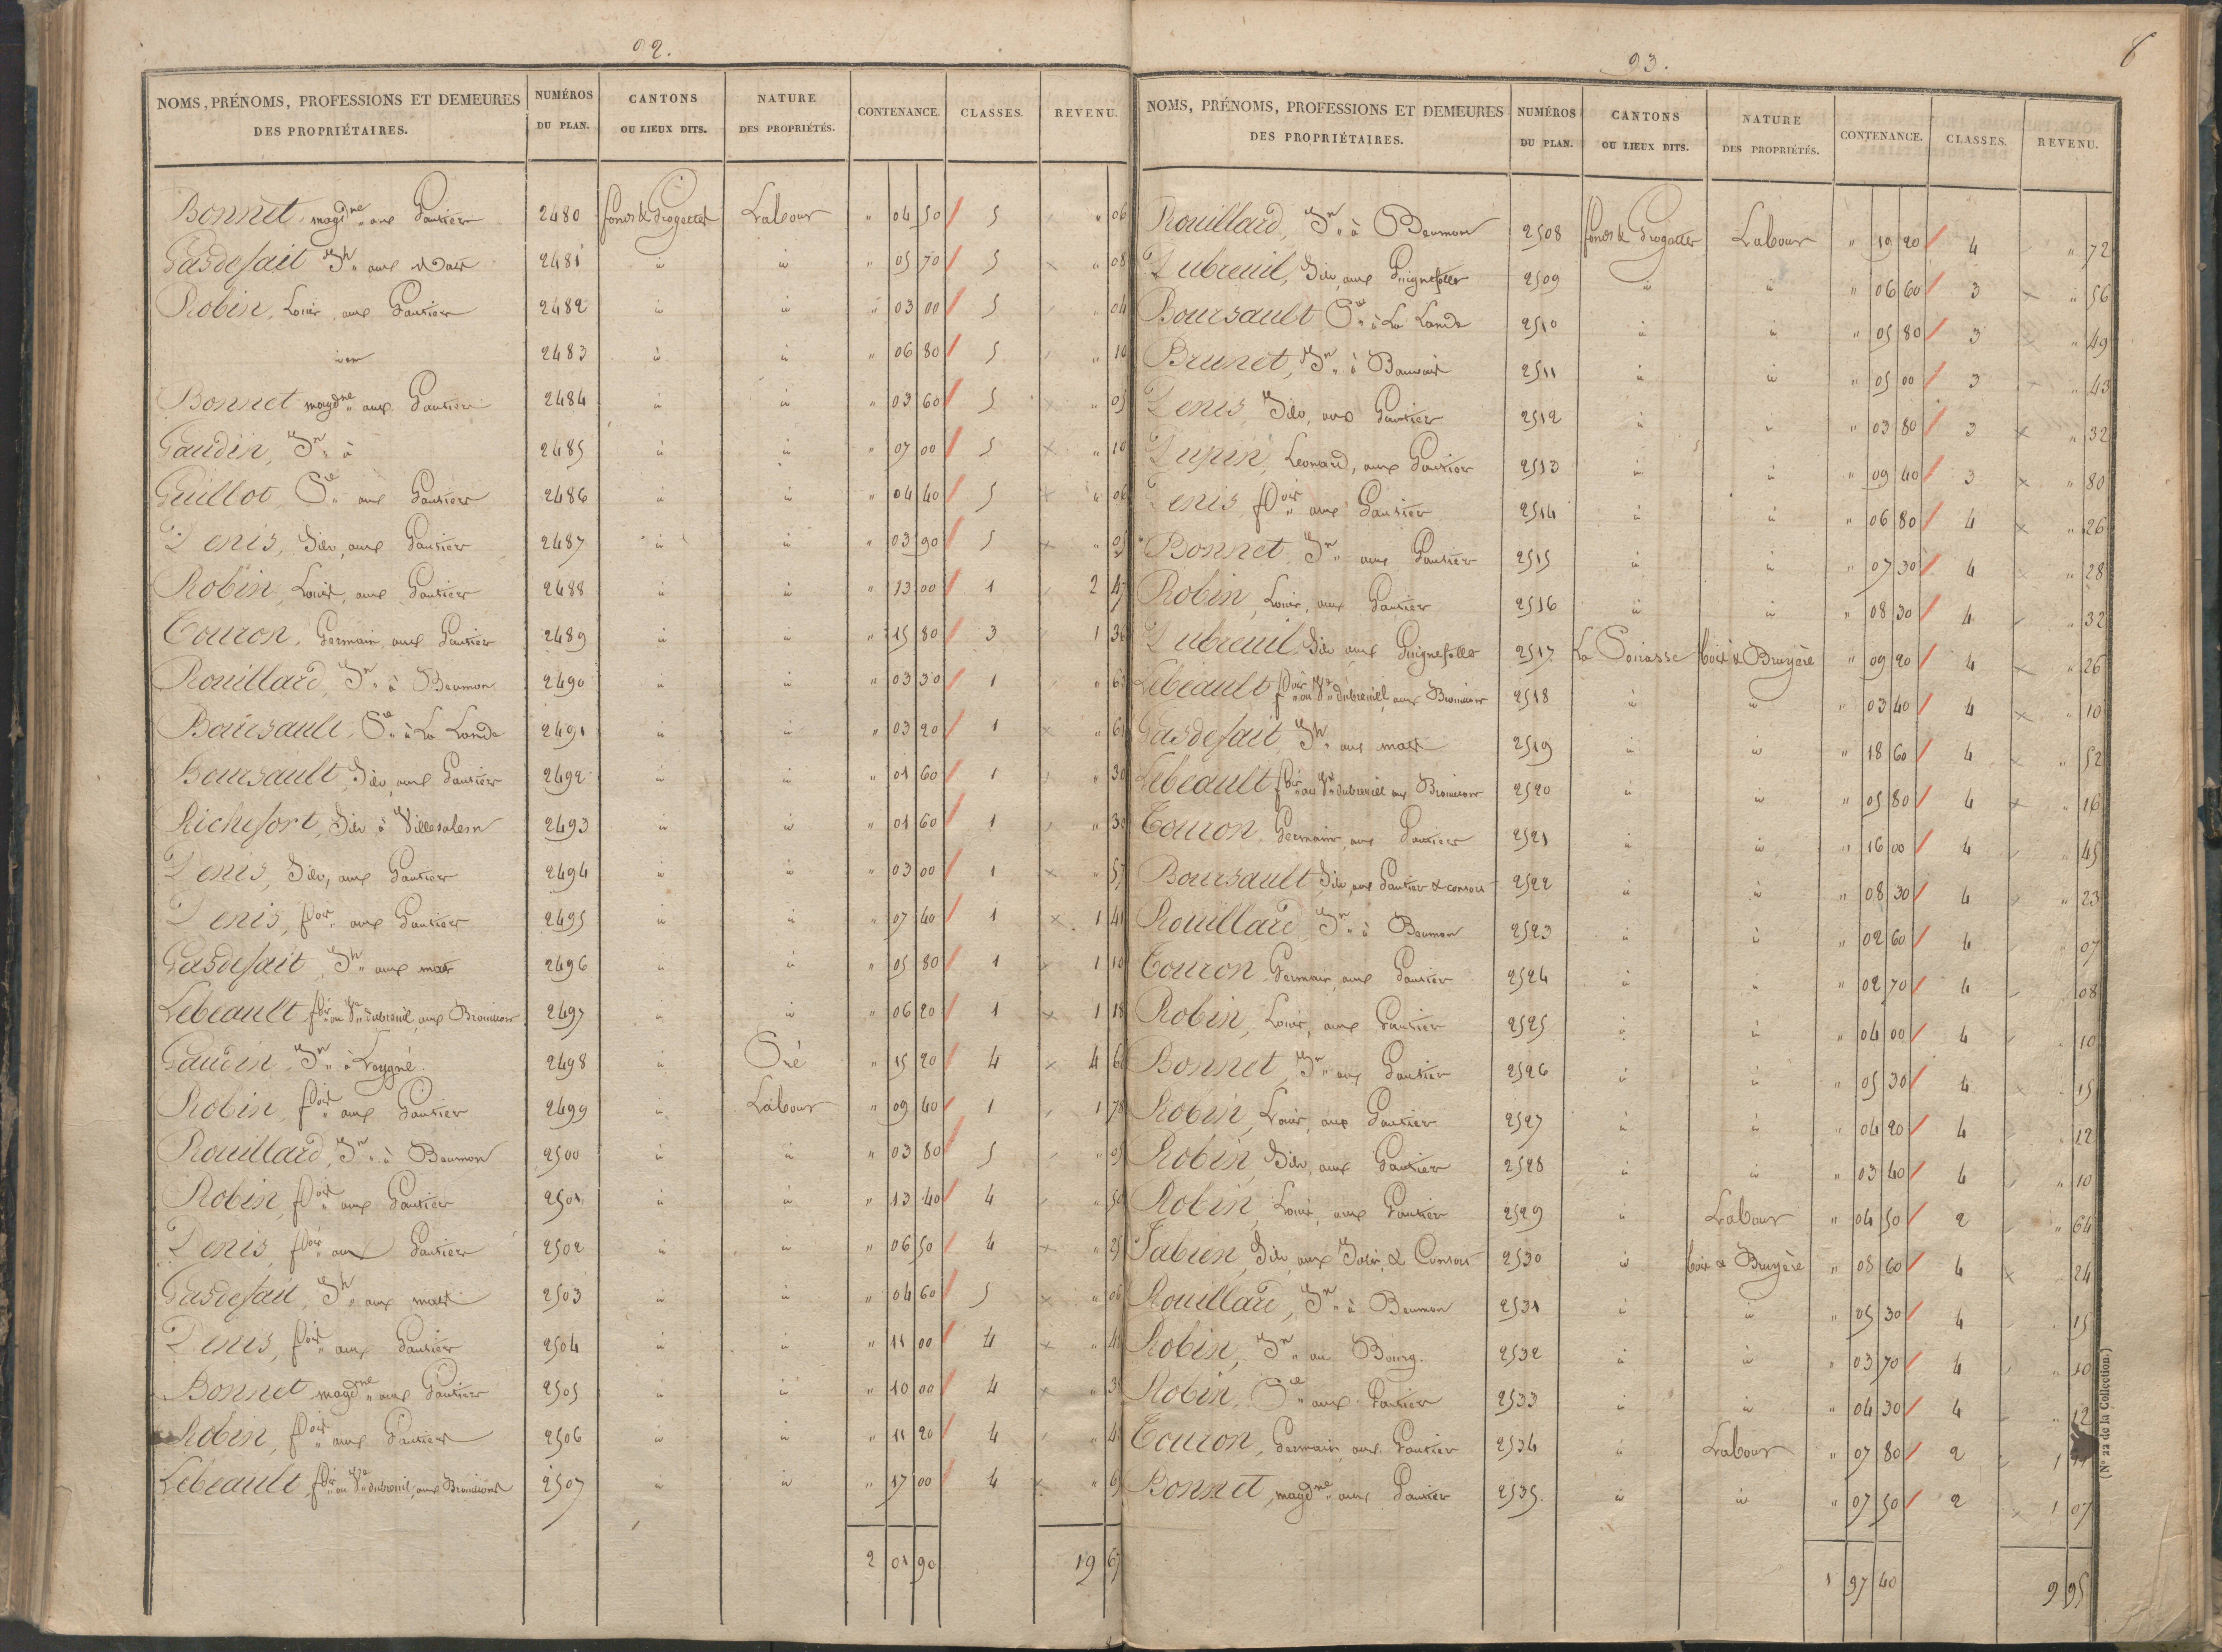 92.
NOMS, PRÉNOMS, PROFESSIONS ET DEMEURES DES PROPRIÉTAIRES. NUMÉROS DU PLAN. CANTONS OU LIEUX DITS. NATURE DES PROPRIÉTÉS. CONTENANCE. CLASSES. REVENU.
Bonnet, magdne aux Gautier 2480 Labour " 04 50 5 " 06
Gasdefait Jh aux 2481 id id " 05 70 5 × " 08
Robin, Louis, aux Gautier 2482 id id " 03 00 5 " 04
idem 2483 id id " 06 80 5 " 10
Bonnet magdne aux Gautier 2484 id id " 03 60 5 × " 05
Gaudin, Jn à 2485 id id " 07 00 5 × " 10
Guillot, Pre aux Gautier 2486 id id " 04 40 5 × " 06
Denis, Silv, aux Gautier 2487 id id " 03 90 5 × " 05
Robin, Louis, aux Gautier 2488 id id " 13 00 1 2 47
Couron, Germain, aux Gautier 2489 id id " 15 80 3 1 36
Rouillard, Jn à Beumon 2490 id id " 03 30 1 " 63
Boursault, Pre à La Lande 2491 id id " 03 20 1 " 61
Boursault, Silv, aux Gautier 2492 id id " 01 60 1 " 30
Richefort, Silv à Villesalem 2493 id id " 01 60 1 " 30
Denis, Silv, aux Gautier 2494 id id " 03 00 1 × " 57
Denis, fçois aux Gautier 2495 id id " 07 40 1 × 1 41
Gasdefait, Jh aux 2496 id id " 05 80 1 × 1 10
Lebeault, fçois ou Ve dubreuil, aux 2497 id id " 06 20 1 × 1 18
Gaudin, Jn à 2498 id Pré " 15 20 4 × 4
Robin, fçois aux Gautier 2499 id Labour " 09 40 1 1 78
Rouillard, Jn à Beumon 2500 id id " 03 80 5 " 05
Robin, fçois aux Gautier 2501 id id " 13 40 4 " 50
Denis, fçois aux Gautier 2502 id id " 06 50 4 × " 25
Gasdefait, Jh aux 2503 id id " 04 60 5 × " 06
Denis, fçois aux Gautier 2504 id id " 11 00 4 × "
Bonnet magdne aux Gautier 2505 id id " 10 00 4 × "
Robin, fçois aux Gautier 2506 id id " 11 20 4 "
Lebeault, fçois ou Ve dubreuil, aux 2507 id id " 17 00 4 × "
2 01 90 19 67
93.
8
NOMS, PRÉNOMS, PROFESSIONS ET DEMEURES DES PROPRIÉTAIRES. NUMÉROS DU PLAN. CANTONS OU LIEUX DITS. NATURE DES PROPRIÉTÉS. CONTENANCE. CLASSES. REVENU.
Rouillard, Jn à Beumon 2508 Labour " 19 20 4 " 72
Dubreuil, Silv, aux Guignefolle 2509 id id " 06 60 3 × " 56
Boursault, Pre à La Lande 2510 id id " 05 80 3 " 49
Brunet, Jn à Bauvais 2511 id id " 05 00 3 " 43
Denis, Silv, aux Gautier 2512 id id " 03 80 3 × " 32
Dupin, Leonard, aux Gautier 2513 id id " 09 40 3 × " 80
Denis fçois aux Gautier 2514 id id " 06 80 4 × " 26
Bonnet, Jn aux Gautier 2515 id id " 07 30 4 × " 28
Robin, Louis, aux Gautier 2516 id id " 08 30 4 " 32
Dubreuil, Silv aux Guignefolle 2517 bois & Bruyère " 09 20 4 × " 26
Lebeault fçois ou Ve dubreuil, aux 2518 id id " 03 40 4 × " 10
Gasdefait, Jh aux 2519 id id " 18 60 4 × " 52
Lebeault fçois ou Ve dubreuil aux 2520 id id " 05 80 4 × " 16
Couron, Germain, aux Gautier 2521 id id " 16 00 4 " 45
Boursault, Silv, aux Gautier & consors 2522 id id " 08 30 4 " 23
Rouillard, Jn à Beumon 2523 id id " 02 60 4 " 07
Couron, Germain, aux Gautier 2524 id id " 02 70 4 08
Robin, Louis, aux Gautier 2525 id id " 04 00 4 10
Bonnet, Jn aux Gautier 2526 id id " 05 30 4 × 15
Robin, Louis, aux Gautier 2527 id id " 04 20 4 12
Robin, Silv, aux Gautier 2528 id id " 03 40 4 " 10
Robin, Louis, aux Gautier 2529 id Labour " 04 50 2 " 64
Fabien, Silv, aux & Consors 2530 id bois & Bruyère " 08 60 4 × 24
Rouillard, Jn à Beumon 2531 id id " 05 30 4 15
Robin, Jn au Bourg. 2532 id id " 03 70 4 " 10
Robin, Pre aux Gautier 2533 id id " 04 30 4 " 12
Couron, Germain, aux Gautier 2534 id Labour " 07 80 2 1
Bonnet, magdne aux Gautier 2535 id id " 07 50 2 × 1 07
1 97 40 9 95
(N° 22 de la Collection.)